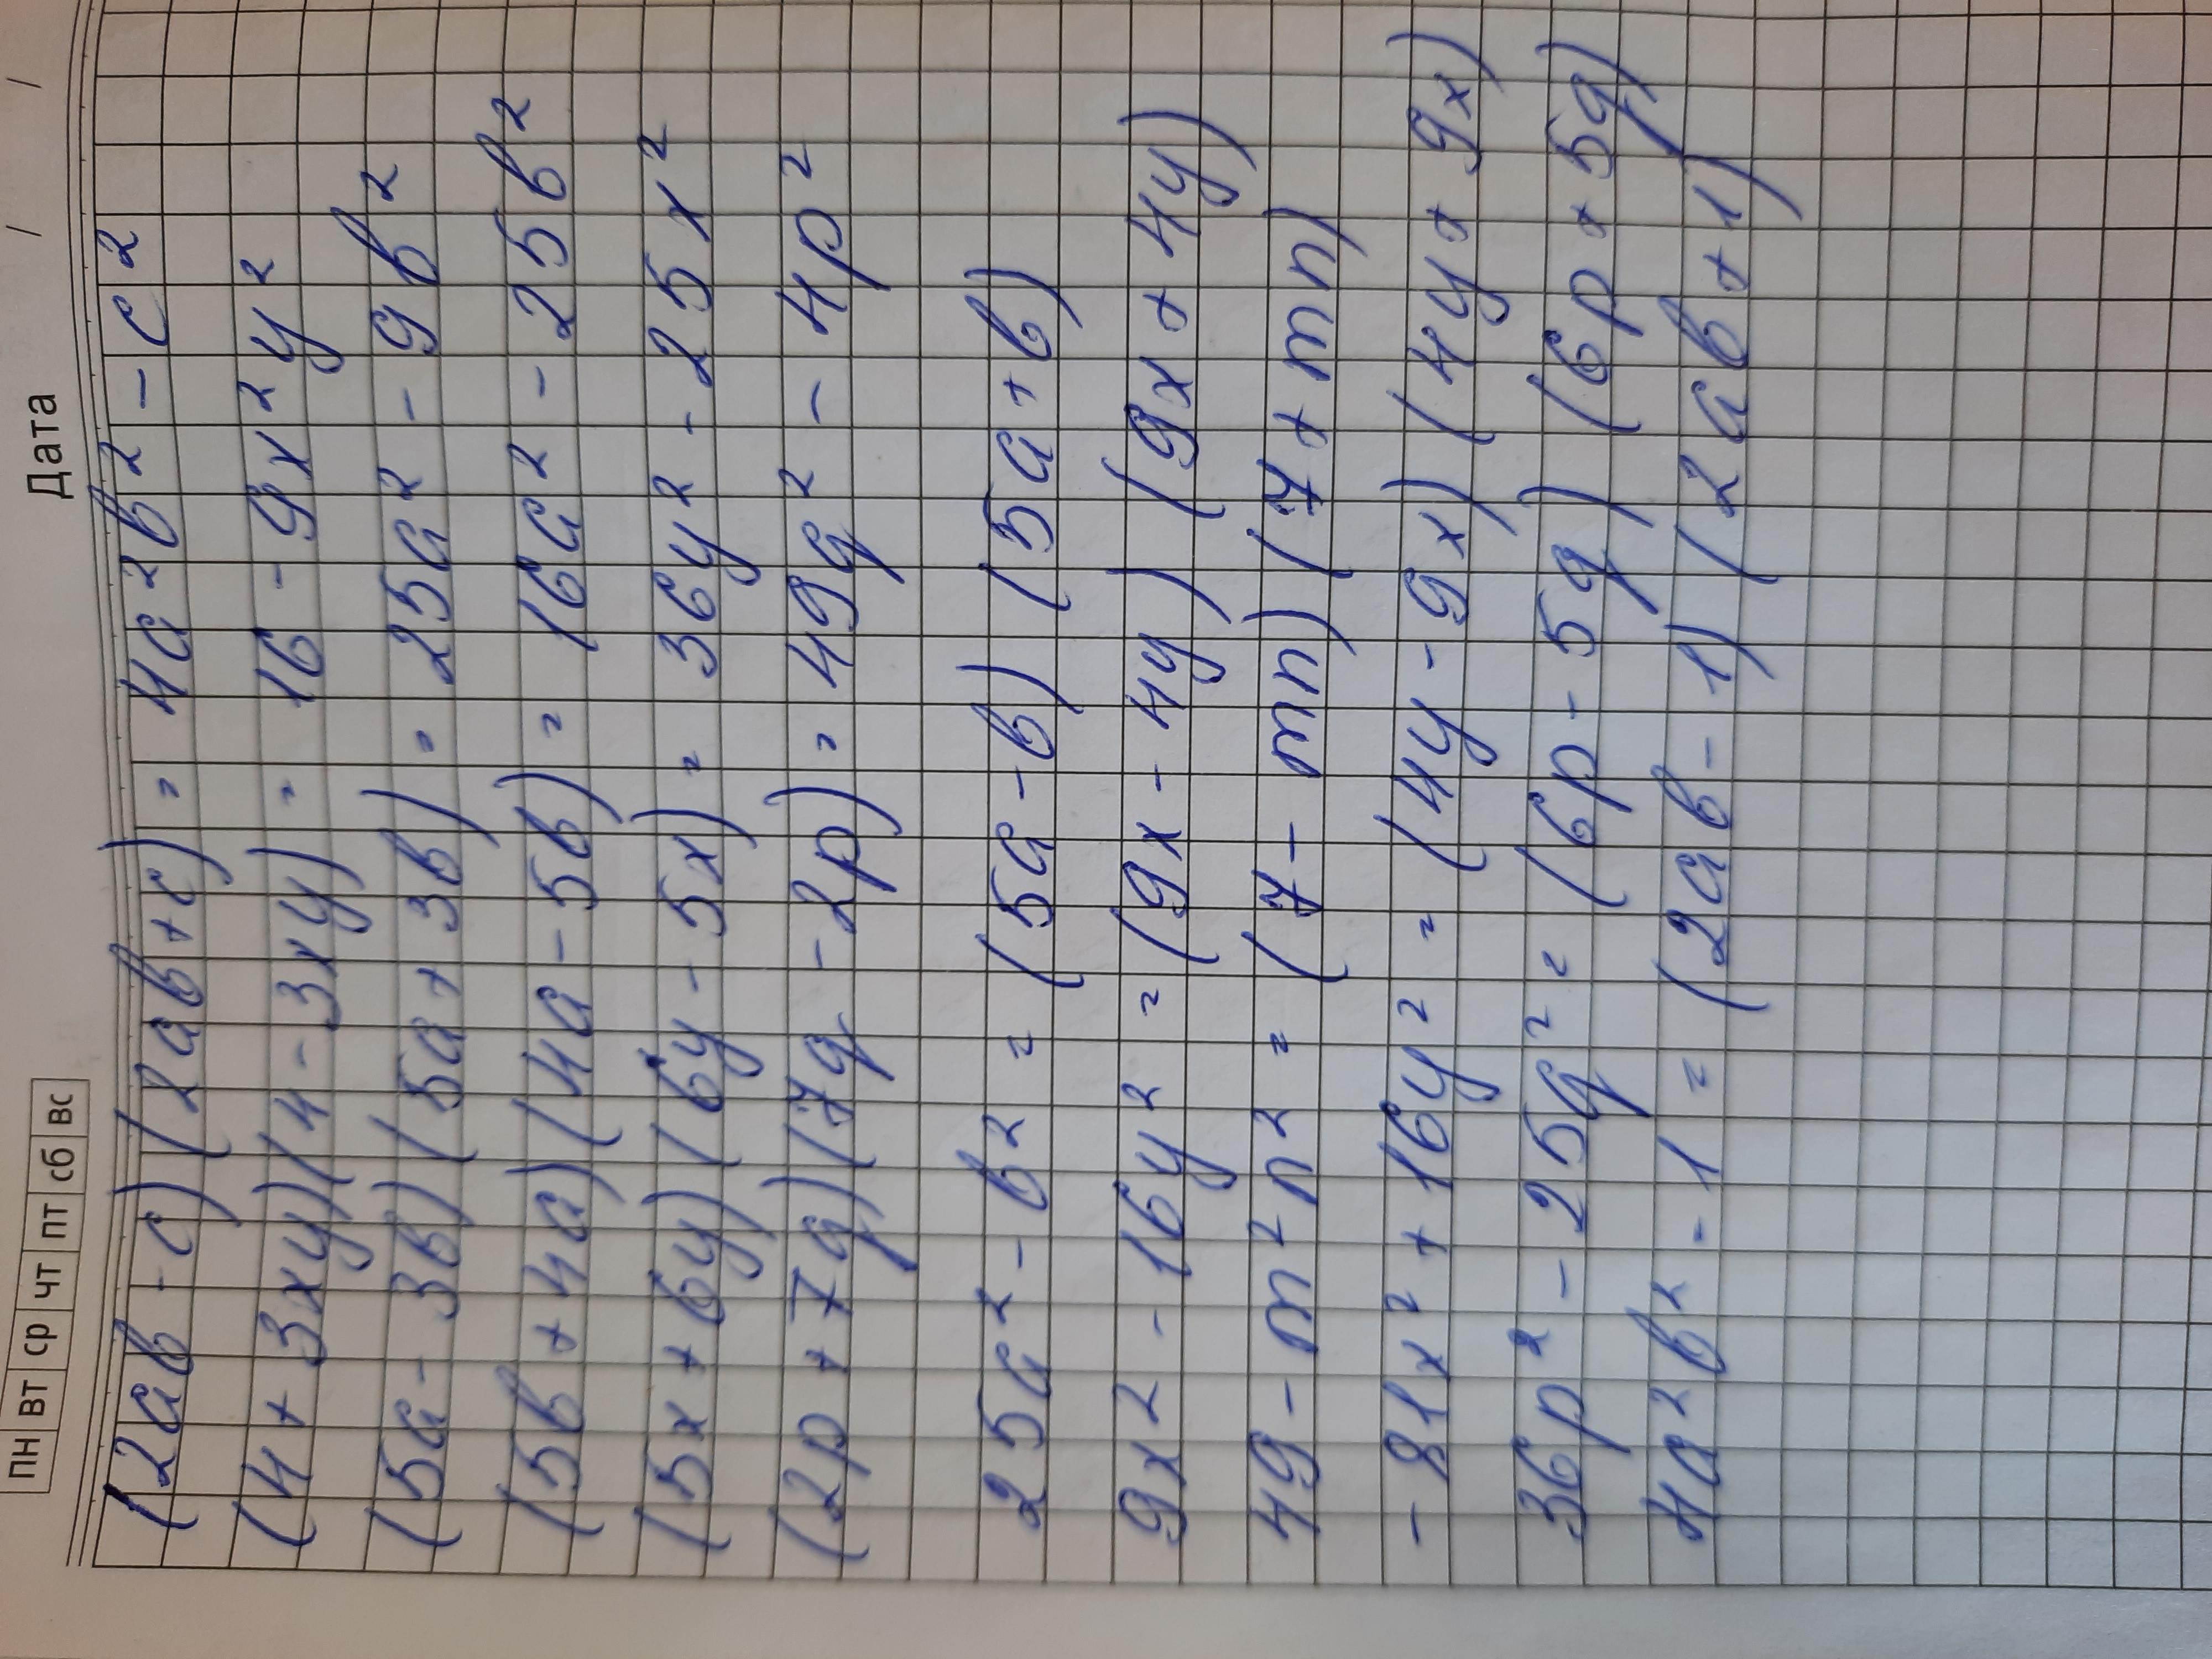 Дата / /
пн вт ср чт пт сб вс
(2ab - c) (2ab + c) = 4a²b² - c²
(4 + 3xy) (4 - 3xy) = 16 - 9x²y²
(5a - 3b) (5a + 3b) = 25a² - 9b²
(5b + 4a) (4a - 5b) = 16a² - 25b²
(5x + 6y) (6y - 5x) = 36y² - 25x²
(2p + 7q) (7q - 2p) = 49q² - 4p²
25a² - b² = (5a - b) (5a + b)
9x² - 16y² = (9x - 4y) (9x + 4y)
49 - m²n² = (7 - mn) (7 + mn)
- 81x² + 16y² = (4y - 9x) (4y + 9x)
36p² - 25q² = (6p - 5q) (6p + 5q)
4a²b² - 1 = (2ab - 1) (2ab + 1)